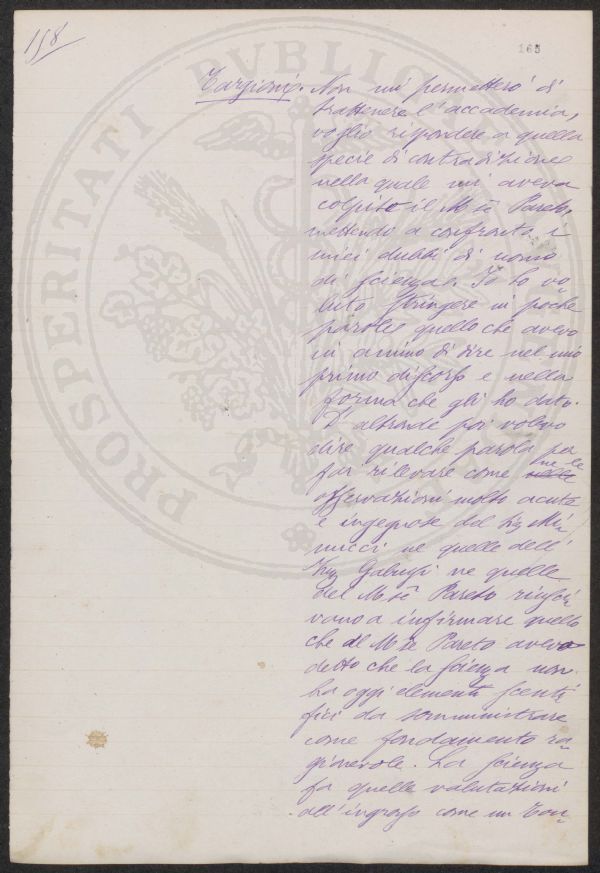 158
165
PROSPERITATI PVBLICAE
Targioni. Non mi permetterò di
trattenere l'accademia,
voglio rispondere a quella
specie di contradizione
nella quale mi aveva
colpito il M se Pareto,
mettendo a confronto i
miei dubbi di uomo
di scienza. Io ho vo-
luto stringere in poche
parole quello che avevo
in animo di dire nel mio
primo discorso e nella
forma che gli ho dato.
D'altronde poi volevo
dire qualche parola per
far rilevare come ne le
osservazioni molto acute
e ingegnose del Sig Mi-
nucci ne quelle dell'
Ing Gabugi ne quelle
del M se Pareto riusci-
vano a infirmare quello
che al M se Pareto avevo
detto che la scienza non
ha oggi elementi scenti-
fici da somministrare
come fondamento ra-
gionevole. La scienza
fa quelle valutazioni
all'ingrosso come un